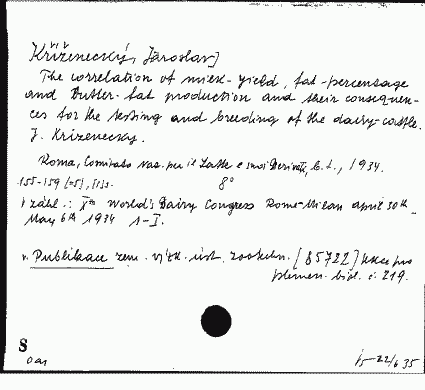 Kříženecký, Jaroslav]
The correlation of milk-yield, fat-percentage
and butter-fat production and their consequen-
ces for the testing and breeding of the dairy-cattle.
J. Kříženecky.
Roma, Comitato naz. per il Latte e suoi Derivati, 1934.
155-159 [=5], [1]s. 8°
V záhl.: Xth World's Dairy Congress Rome-Milan april 30th -
May 6th 1934 1-I.
v. Publikace zem. výzk. úst. zootechn. [85722] sekce pro
plemen. biol. č. 219.
S
22/6 35